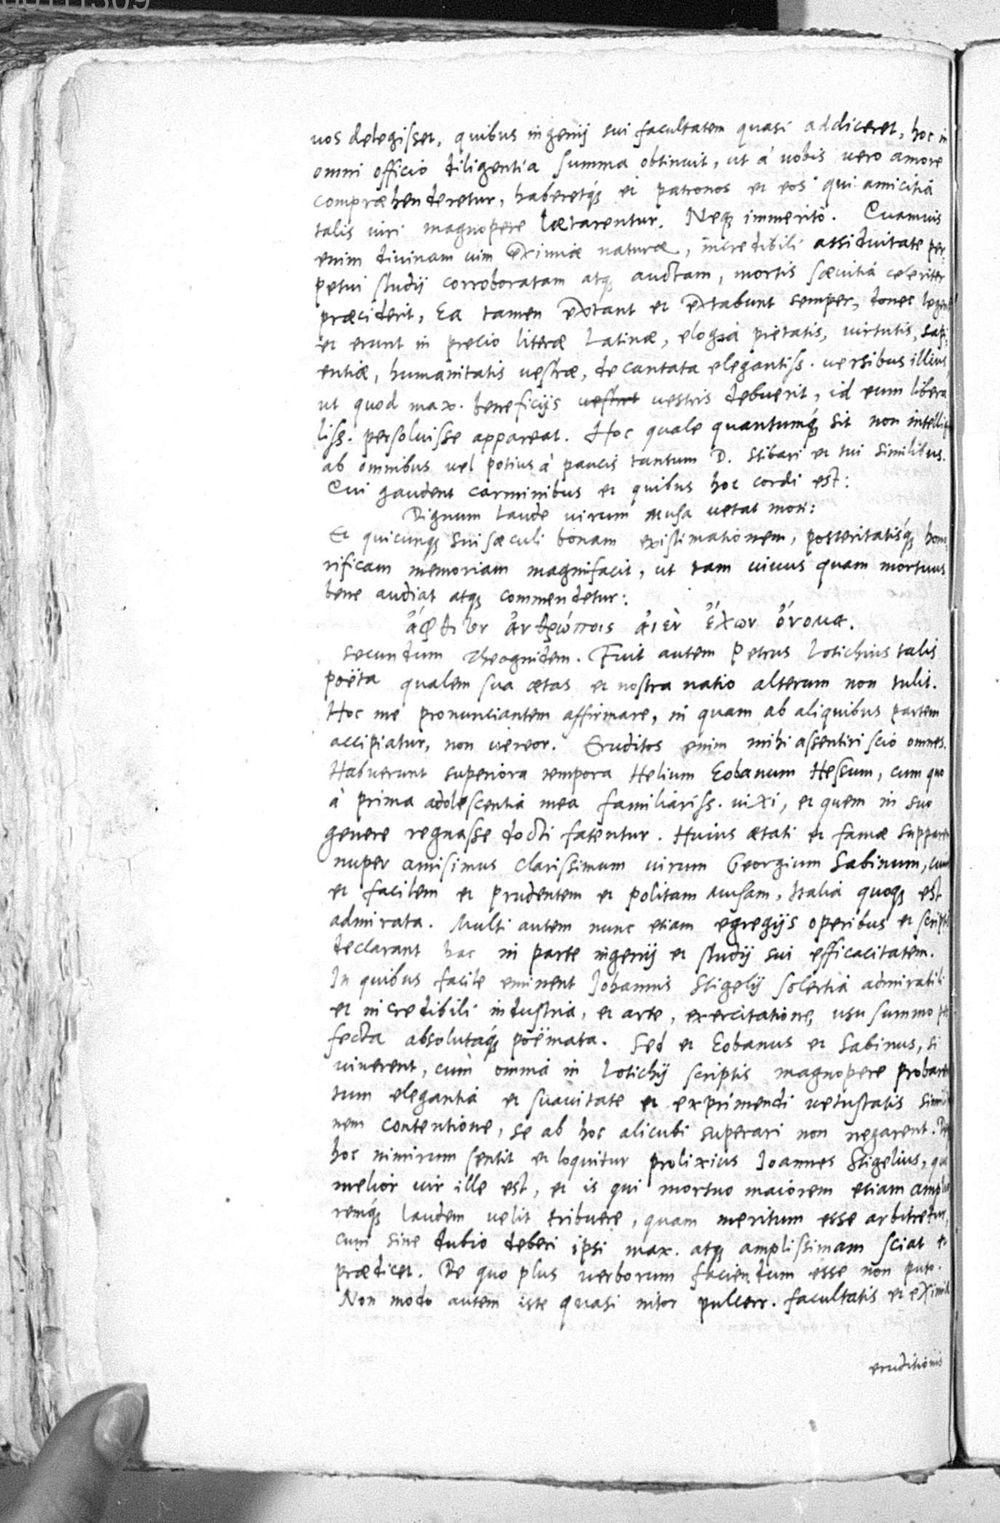 uos delegisset, quibus ingenij sui facultatem quasi addiceret, hoc in
omni officio diligentia summa obtinuit, ut à uobis uero amore
compræhenderetur, haberetq́; et patronos et eos qui amicitiâ
talis uiri magnopere lætarentur. Neq; immeritò. Quamuis
enim diuinam uim eximiæ naturæ, incredibili assiduitate per
petui studij corroboratam atq; auctam, mortis sæuitia celeriter
præciderit, Ea tamen extant et extabunt semper, donec legent
et erunt in precio literæ Latinæ, elogia pietatis, uirtutis, sapi
entiæ, humanitatis uestræ, decantata elegantiss. uersibus illius
ut quod max. beneficijs uestris debuerit, id eum libera
liss. persoluisse appareat. Hoc quale quantumq́; sit non intellig
ab omnibus uel potius à paucis tantum D. Stibari et tui similibus.
Qui gaudent carminibus et quibus hoc cordi est:
Dignum laude uirum Musa uetat mori:
Et quicunq; sui sæculi bonam existimationem, posteritatisq́; hono
rificam memoriam magnifacit, ut tam uiuus quam mortuus
bene audiat atq; commendetur:
ἄφθιτον ἀνθρώποις αἰὲν ἔχων ὄνομα.
secundum Theognidem. Fuit autem Petrus Lotichius talis
poëta qualem sua ætas et nostra natio alterum non tulit.
Hoc me pronunciantem affirmare, in quam ab aliquibus partem
accipiatur, non uereor. Eruditos enim mihi assentiri scio omnes.
Habuerunt superiora tempora Helium Eobanum Hessum, cum quo
à prima adolescentia mea familiariss. uixi, et quem in suo
genere regnasse docti fatentur. Huius ætati et famæ supparem
nuper amisimus clarissimum uirum Georgium Sabinum, cuius
et facilem et prudentem et politam Musam, Italia quoq; est
admirata. Multi autem nunc etiam egregijs operibus et scriptis
declarant hac in parte ingenij et studij sui efficacitatem.
In quibus facile eminent Johannis Stigelij solertiâ admirabili
et incredibili industria, et arte, exercitatione, usu summo per
fecta absolutaq́; poëmata. Sed et Eobanus et Sabinus, si
uiuerent, cùm omnia in Lotichij scriptis magnopere probarent
tum elegantia et suauitate et exprimendi uetustatis simili
nem contentione, se ab hoc alicubi superari non negarent.
hoc nimirum sentit et loquitur prolixius Joannes Stigelius, quo
melior uir ille est, et is qui mortuo maiorem etiam amplio
remq; laudem uelit tribuere, quam meritum esse arbitretur,
cum sine dubio deberi ipsi max. atq; amplissimam sciat et
prædicet. De quo plus uerborum faciendum esse non puto.
Non modò autem iste quasi nitor pulcerr. facultatis et eximiæ
eruditionis